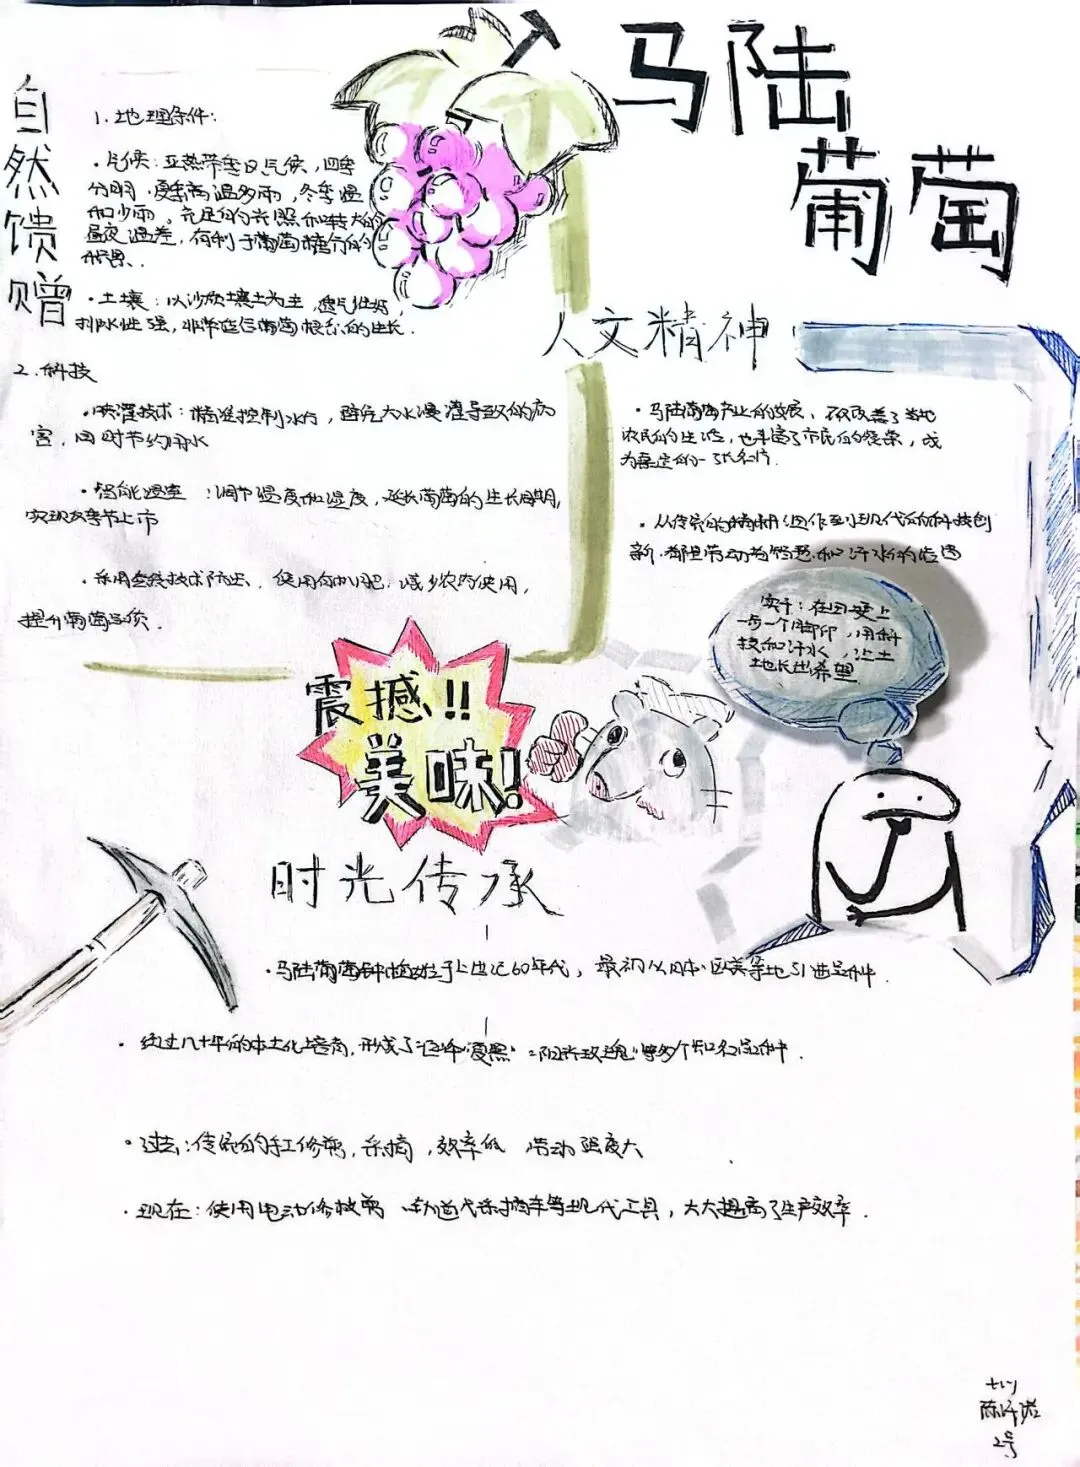 马陆
葡萄
自然馈赠
1. 地理条件:
·气候: 亚热带季风气候, 四季
分明. 夏季高温多雨, 冬季温
和少雨。充足的光照和较大的
昼夜温差, 有利于葡萄糖分的
积累.
·土壤: 以沙质壤土为主, 透气性好,
排水性强, 非常适合葡萄根系的生长.
2. 科技
·滴灌技术: 精准控制水分, 避免大水漫灌导致的病
害, 同时节约用水
·智能温室: 调节温度和湿度, 延长葡萄的生长周期,
实现反季节上市
·采用 技术防虫、使用有机肥. 减少农药使用,
提升葡萄品质.
人文精神
·马陆葡萄产业的发展、不仅改善了当地
农民的生活, 也丰富了市民的 , 成
为嘉定的一张名片.
·从传统的精耕细作到现代的科技创
新. 都是劳动者智慧和汗水的结晶
实干: 在田埂上
一步一个脚印, 用科
技和汗水, 让土
地长出希望
震撼!!
美味!
时光传承
·马陆葡萄种植始于上世纪60年代, 最初从日本、欧美等地引进品种.
·经过几十年的本土化培育, 形成了“巨峰”“夏黑”“阳光玫瑰”等多个知名品种.
·过去: 传统的手工修剪, 采摘, 效率低 劳动强度大
·现在: 使用电动修枝剪 、轨道式采摘车等现代工具, 大大提高了生产效率.
2号